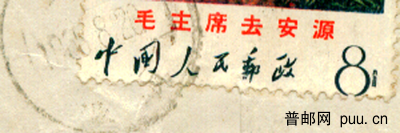 毛主席去安源
中国人民邮政
8分
普邮网 puu.cn